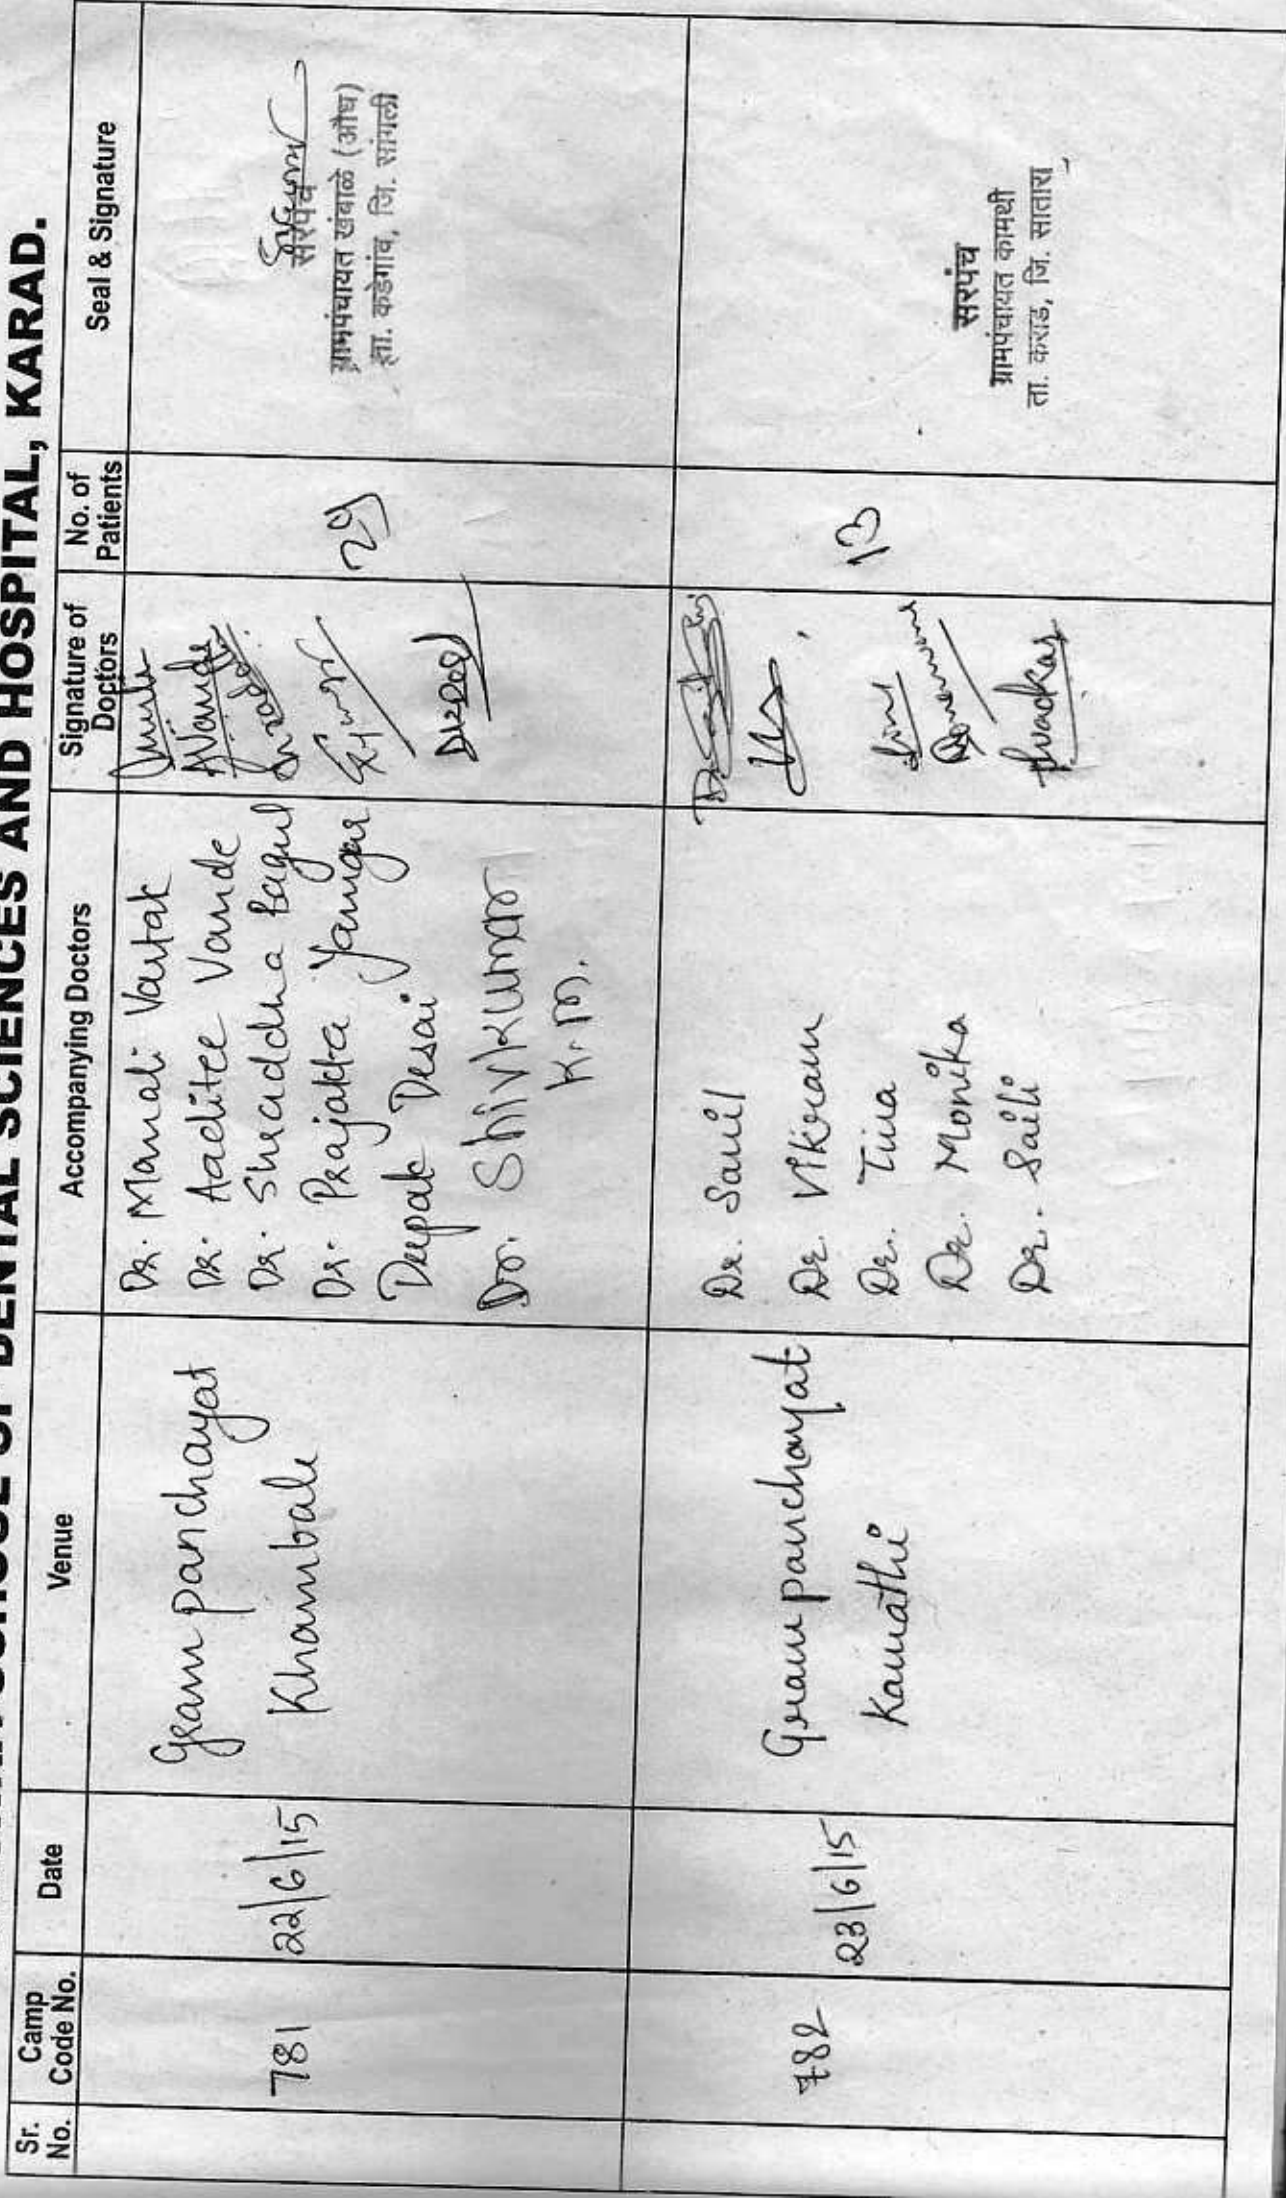 SCHOOL OF DENTAL SCIENCES AND HOSPITAL, KARAD.
Sr. No.
Camp Code No.
Date
Venue
Accompanying Doctors
Signature of Doctors
No. of Patients
Seal & Signature
781
22/6/15
Gram panchayat
Khambale
Dr. Manali Vartak
Dr. Aaditee Vande
Dr. Shraddha Bagul
Dr. Prajakta Yamgar
Deepak Desai
Dr. Shivkumar
K.M.
29
सरपंच
ग्रामपंचायत खंबाळे (औंध)
ता. कडेगांव, जि. सांगली
782
23/6/15
Grampanchayat
Kamathi
Dr. Sanil
Dr. Vikram
Dr. Tina
Dr. Monika
Dr. Saili
13
सरपंच
ग्रामपंचायत कामथी
ता. कराड, जि. सातारा